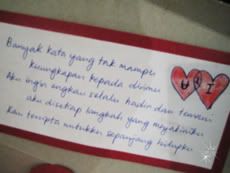 Banyak kata yang tak mampu
kuungkapkan kepada dirimu
Aku ingin engkau selalu hadir dan temani
aku disetiap langkah yang meyakiniku
Kau tercipta untukku sepanjang hidupku
U & I